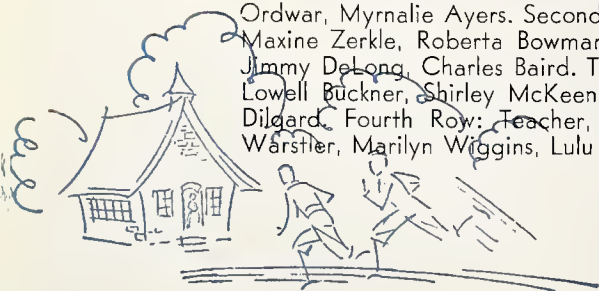 Ordwar, Myrnalie Ayers. Second
Maxine Zerkle, Roberta Bowman
Jimmy DeLong, Charles Baird. T
Lowell Buckner, Shirley McKeen
Dilgard. Fourth Row: Teacher,
Warstler, Marilyn Wiggins, Lulu